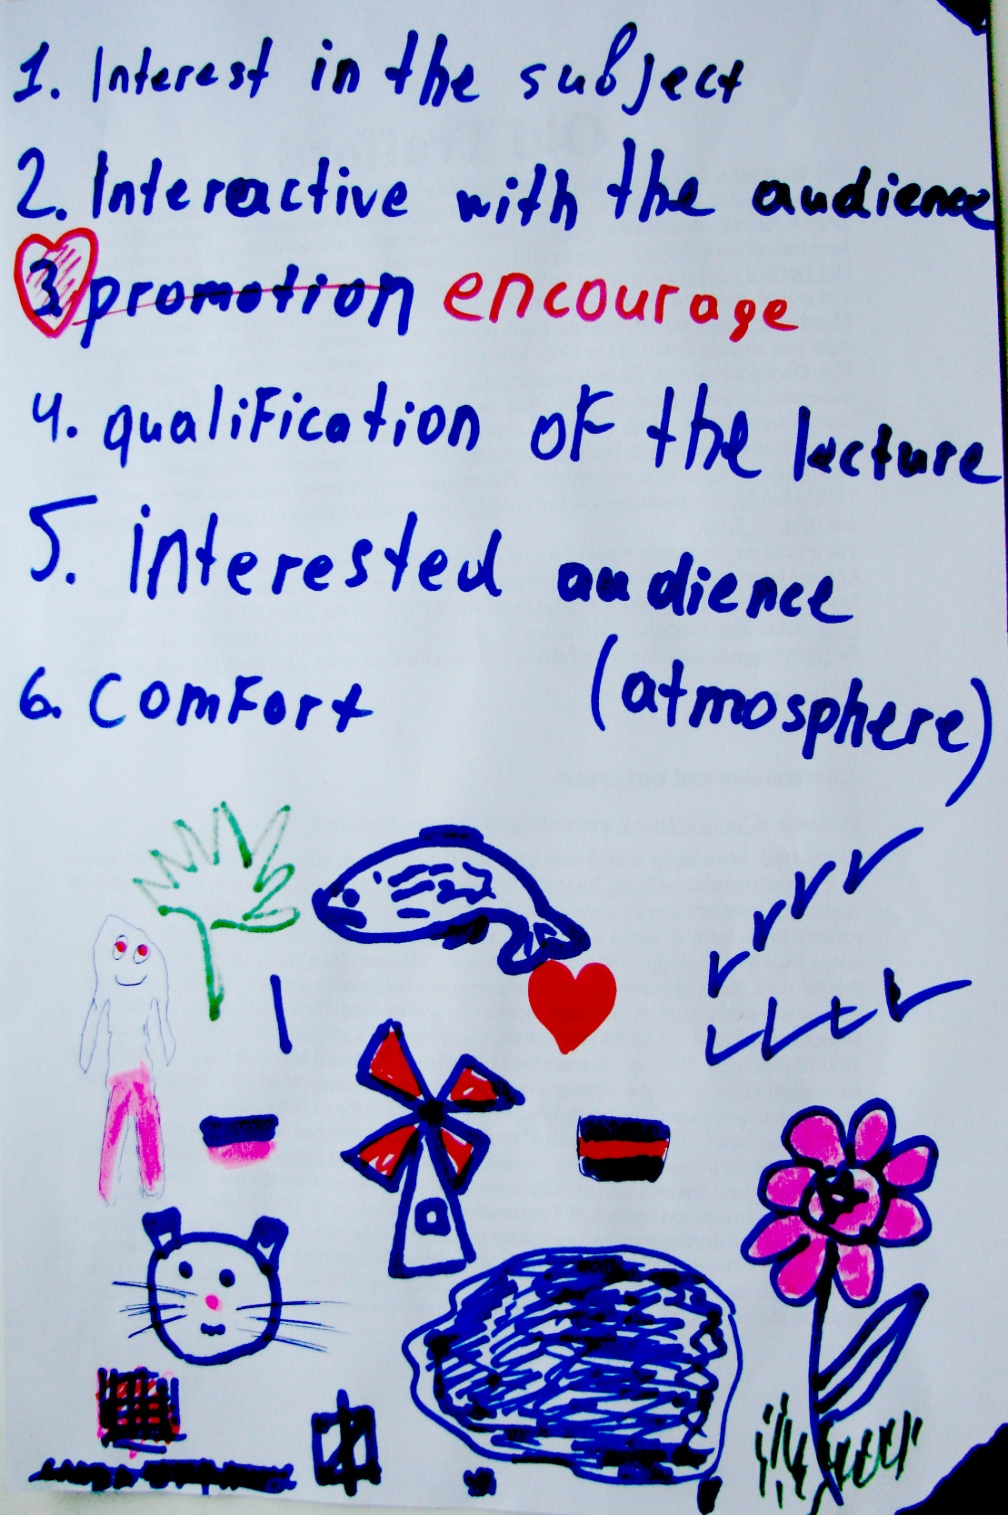 1. Interest in the subject
2. Interactive with the audience
3. promotion encourage
4. qualification of the lecture
5. interested audience
6. comfort (atmosphere)